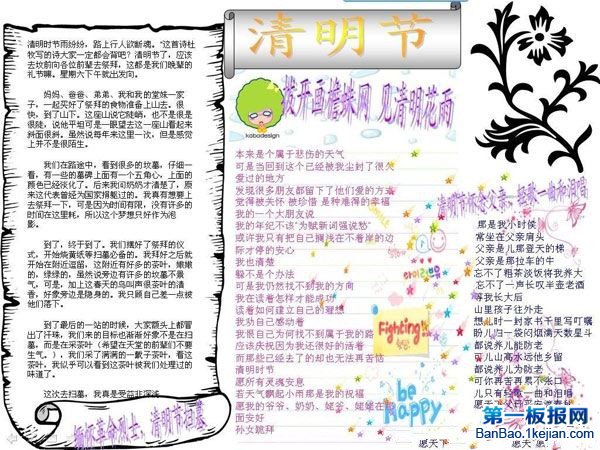 清明时节雨纷纷，路上行人欲断魂。"这首诗杜
牧写的诗大家一定都会背吧？清明节了，应该
去坟前向各位前辈去祭拜，这都是我们晚辈的
礼节嘛。星期六下午就出发向。
妈妈、爸爸、弟弟、我和我的堂妹一家
子，一起买好了祭拜的食物准备上山去。很
快，到了山下。这座山说它陡峭，也不是很是
很陡，说他平坦可是一眼望去这一座山看起来
斜面很斜。虽然说每年来这里一次，但是感觉
上并不是很陌生。
我们在路途中，看到很多的坟墓。仔细一
看，有一些的墓碑上面有一个五角心，上面的
颜色已经淡化了。后来我问奶奶才清楚了，原
来这代表曾经为国家捐躯过的。我真有想要上
去祭拜一下，可是因为时间有限，没有许多的
时间在这里耗，所以这个梦想只好作为泡
影。
到了，终于到了。我们摆好了祭拜的仪
式，开始烧黄纸等扫墓必备的。我拜好之后就
开始在附近逗留，这附近有好多的茶叶，嫩嫩
的，绿绿的，虽然说旁边有许多的坟墓不景
气，可是，加上这春天的鸟叫声很茶叶的清
香，好象旁边是隐身的。我只顾自己差一点被
他们落下。
到了最后的一站的时候，大家额头上都冒
出了汗珠，我们来的目标也渐渐好象不是在扫
墓，而是在采茶叶（希望在天堂的前辈们不要
生气。），我们采了满满的一麒子茶叶，看这
茶叶，我似乎可以看到这茶叶被我们处理过的
味道了。
这次去扫墓，我真是受益非浅
缅怀革命烈士、清明节扫墓
清明节
拨开画檐蛛网 见清明花雨
kabadesign
本来是个属于悲伤的天气
可是当回到这个己经被我尘封了很久
爱过的地方
发现很多朋友都留下了他们爱的方式
觉得被关怀 被珍惜 是种难得的幸福
我的一个大朋友说
我的年纪不该"为赋新词强说愁"
或许我只有把自己搁浅在不着岸的边
际才停的安心
我也清楚
躲不是个办法
可是我仍然找不到我的方向
我在读着怎样才能成功
读着如何建立自己的理想
我劝自己感动着
我很自己为何找不到属于我的路
也该庆抚因为我还很好的活着
而那些己经去了的却也无法再苦恼
清明时节
愿所有灵魂安息
若天气飘起小雨那是我的祝福
愿我的爷爷、奶奶、姥爷、姥姥在那
面安好
孙女跪拜
Fighting
be
happy
清明节怀念父亲
那是我小时候
常坐在父亲肩头
父亲是儿那登天的梯
父亲是那拉车的牛
忘不了粗茶淡饭将我养大
忘不了一声长叹半壶老酒
等我长大后
山里孩子往外走
想儿时一封家书千里写叮嘱
盼儿归一袋闷烟满天数星斗
都说养儿能防老
可儿山高水远他乡留
都说养儿为防老
可你再苦再累不张口
儿只有轻歌一曲和泪唱
愿天下
愿天下
第一板报网
BanBao.1kejian.com